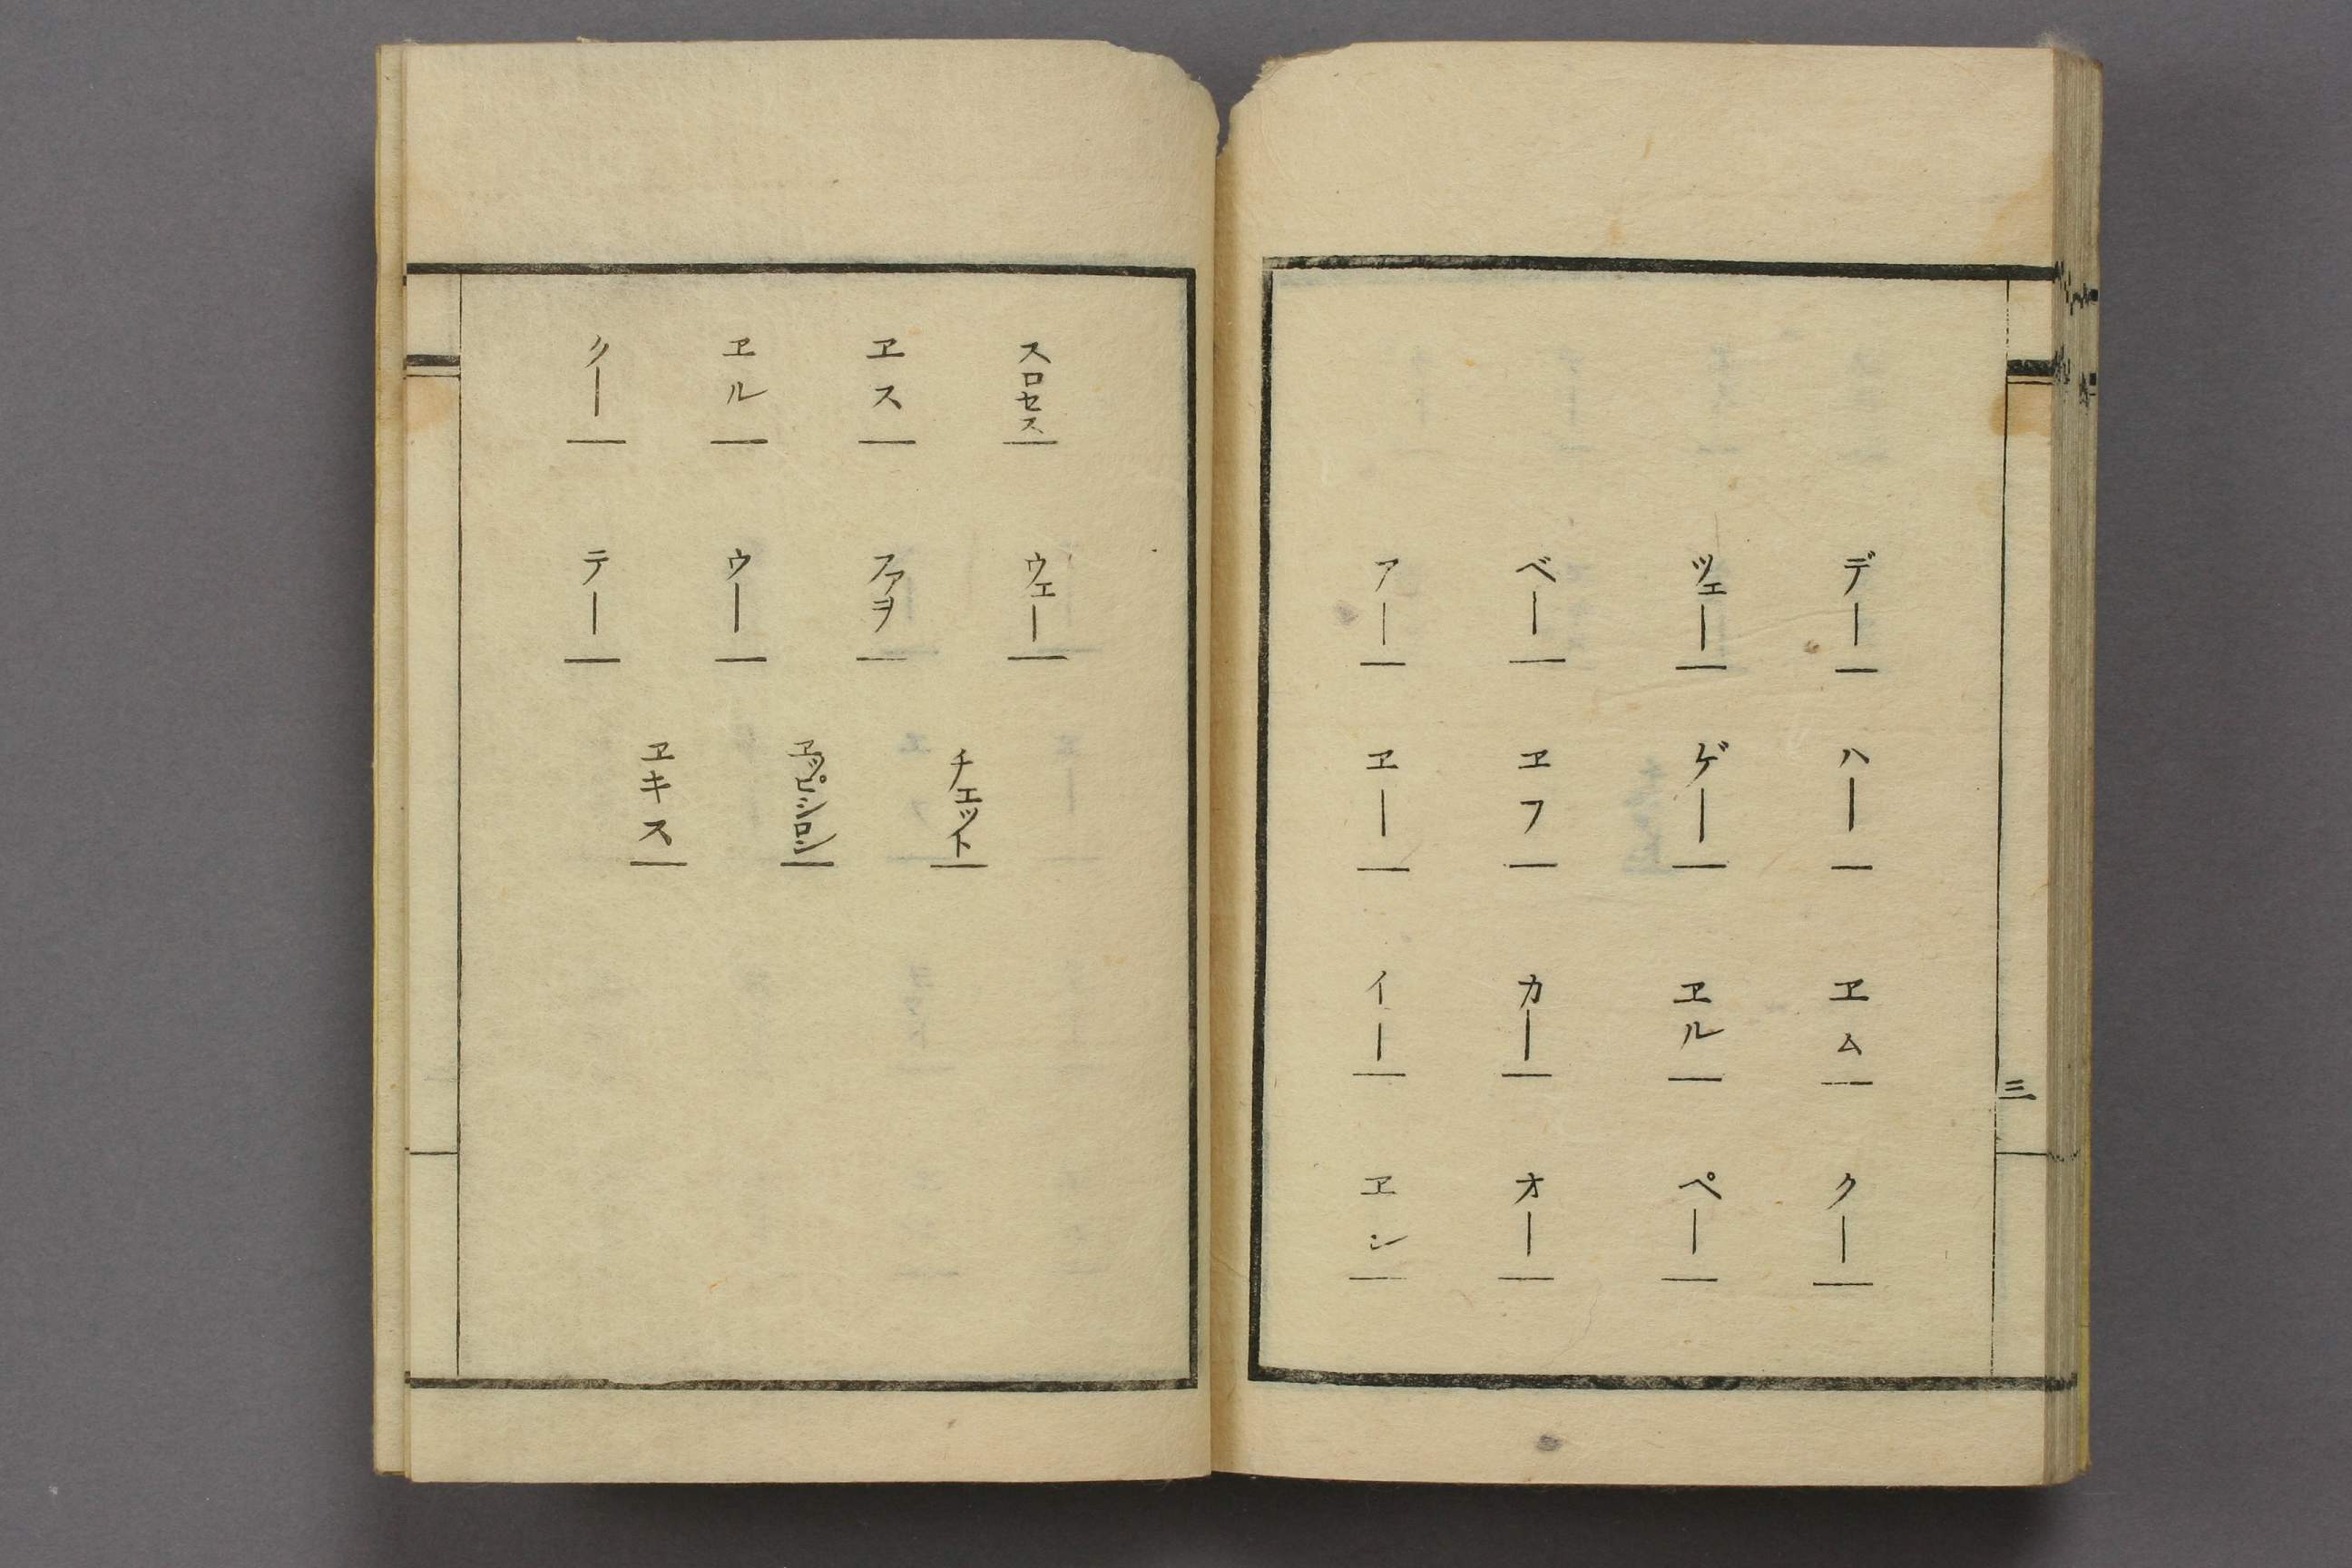 アー
ベー
ツェー
デー
ヱー
ヱフ
ゲー
ハー
イー
カー
ヱル
ヱム
ヱン
オー
ペー
クー
三
クー
ヱル
ヱス
スロセス
テー
ウー
ファヲ
ウェー
ヱキス
ヱッピシロン
チエット